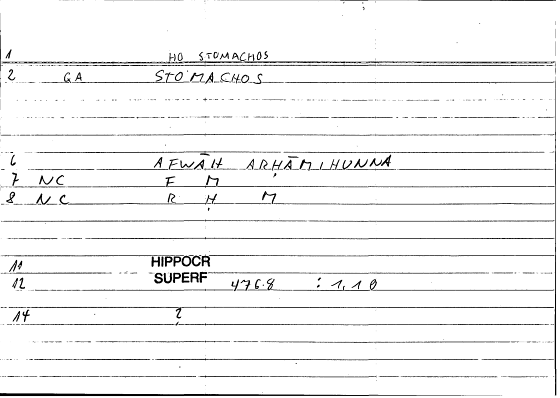 1 HO STOMACHOS
2 GA STOMACHOS
6 AFWĀH ARḤĀMIHUNNA
7 NC F M
8 NC R Ḥ M
11 HIPPOCR
12 SUPERF 476.8 : 1,10
14 ?